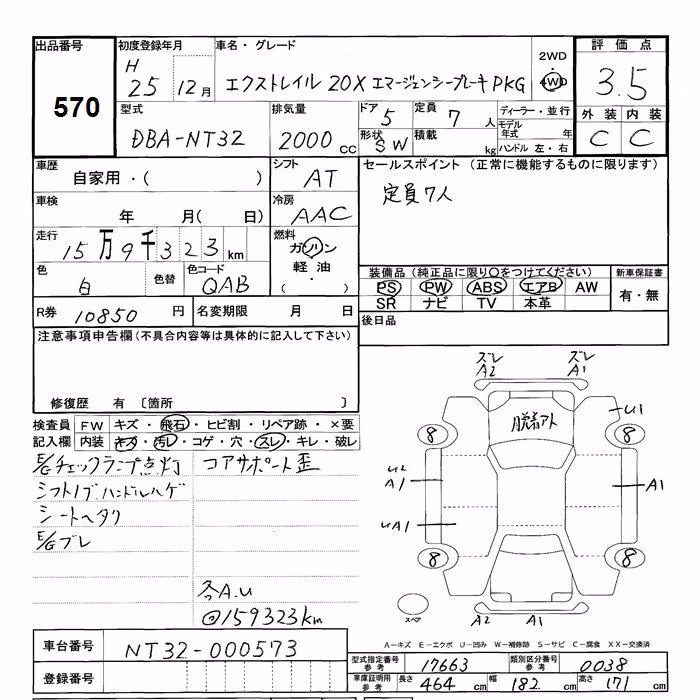 出品番号 初度登録年月 車名・グレード 評価点
570
H 25 12月 エクストレイル 20X エマージェンシーブレーキPKG 2WD 4WD 3.5
型式 排気量 ドア 5 定員 7 人 ディーラー・並行 外装 内装
DBA-NT32 2000 cc 形状 SW 積載 kg モデル年式 年 ハンドル 左・右 C C
車歴 シフト セールスポイント (正常に機能するものに限ります)
自家用・( ) AT 定員7人
車検 冷房
年 月( 日) AAC
走行 燃料
15万9千323km ガソリン
軽油・
( )
色 色替 色コード 装備品(純正品に限り○をつけてください) 新車保証書
白 QAB PS PW ABS エアB AW 有・無
SR ナビ TV 本革
R券 10850 円 名変期限 月 日 後日品
注意事項申告欄(不具合内容等は具体的に記入して下さい)
修復歴 有 〔箇所 〕
検査員 FW キズ・飛石・ヒビ割・リペア跡・×要
記入欄 内装 キズ・汚レ・コゲ・穴・スレ・キレ・破レ
E/Gチェックランプ点灯 コアサポート歪
シフトノブ ハンドルハゲ
シートヘタリ
E/Gブレ
各A.U
@159323km
ズレ ズレ
A2 A1
脱着アト
U1
8 8
A1 A1
UA1
8 8
スペア A2 A1
A-キズ E-エクボ U-凹み W-補修跡 S-サビ C-腐食 XX-交換済
車台番号 NT32-000573
型式指定番号 参考 17663 類別区分番号 参考 0038
登録番号
車庫証明用 参考 長さ 464 cm 幅 182 cm 高さ 171 cm